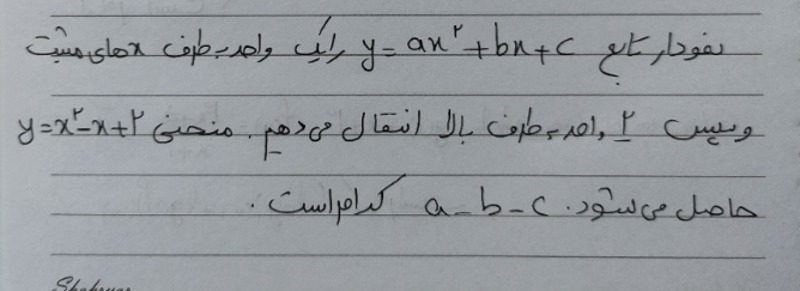 نمودار تابع y = ax² + bx + c را یک واحد به طرف xهای مثبت
و سپس ۲ واحد به طرف بالا انتقال می‌دهیم. منحنی y = x² - x + ۲
حاصل می‌شود. a - b - c کدام است.